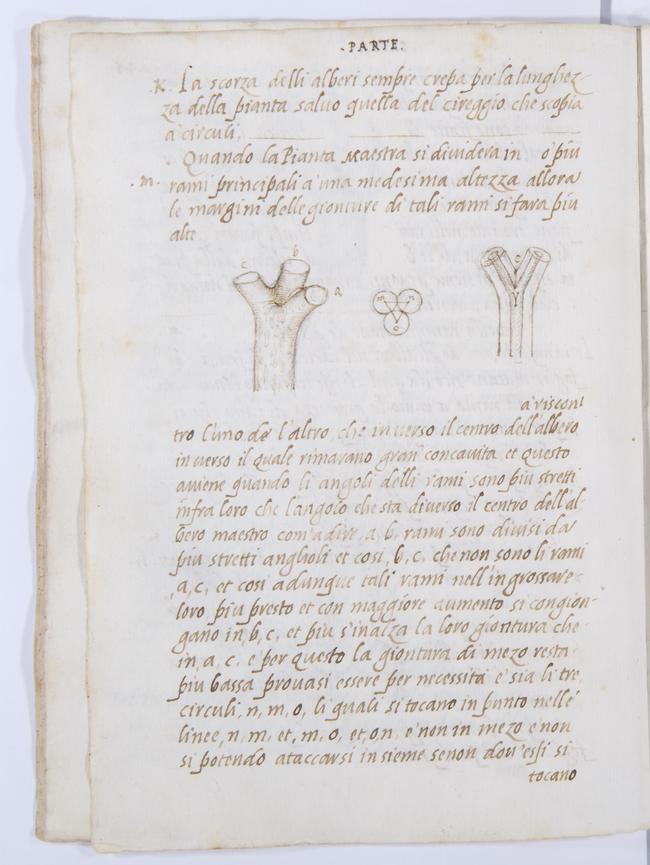 ·PARTE·
·K· La scorza delli alberi sempre crepa per la lunghez
za della pianta salvo quella del cireggio che scopia
a circuli,
Quando la Pianta Maestra si dividera in o piu
·m· rami principali a una medesima altezza allora
le margini delle gionture di tali rami si fara piu
alte
c b a
m n o
e
a riscont
tro l'uno de l'altro, che inverso il centro dell'albero
inverso il quale rimarano gran concavita et questo
aviene quando li angoli delli rami sono piu stretti
infra loro che l'angolo che sta diverso il centro dell'al
bero maestro com'a dire, a, b, rami sono divisi da
piu stretti anglioli et cosi, b, c, che non sono li rami
,a, c, et cosi adunque tali rami nell'ingrossare
loro piu presto et con maggiore aumento si congion-
gano in, b, c, et piu s'inalza la loro giontura che
in, a, c, e per questo la giontura di mezo resta
piu bassa provasi essere per necessità e sia li tre
circuli, n, m, o, li quali si tocano in punto nelle
linee, n, m, et, m, o, et, o n, e non in mezo e non
si potendo ataccarsi insieme senon dov'essi si
tocano